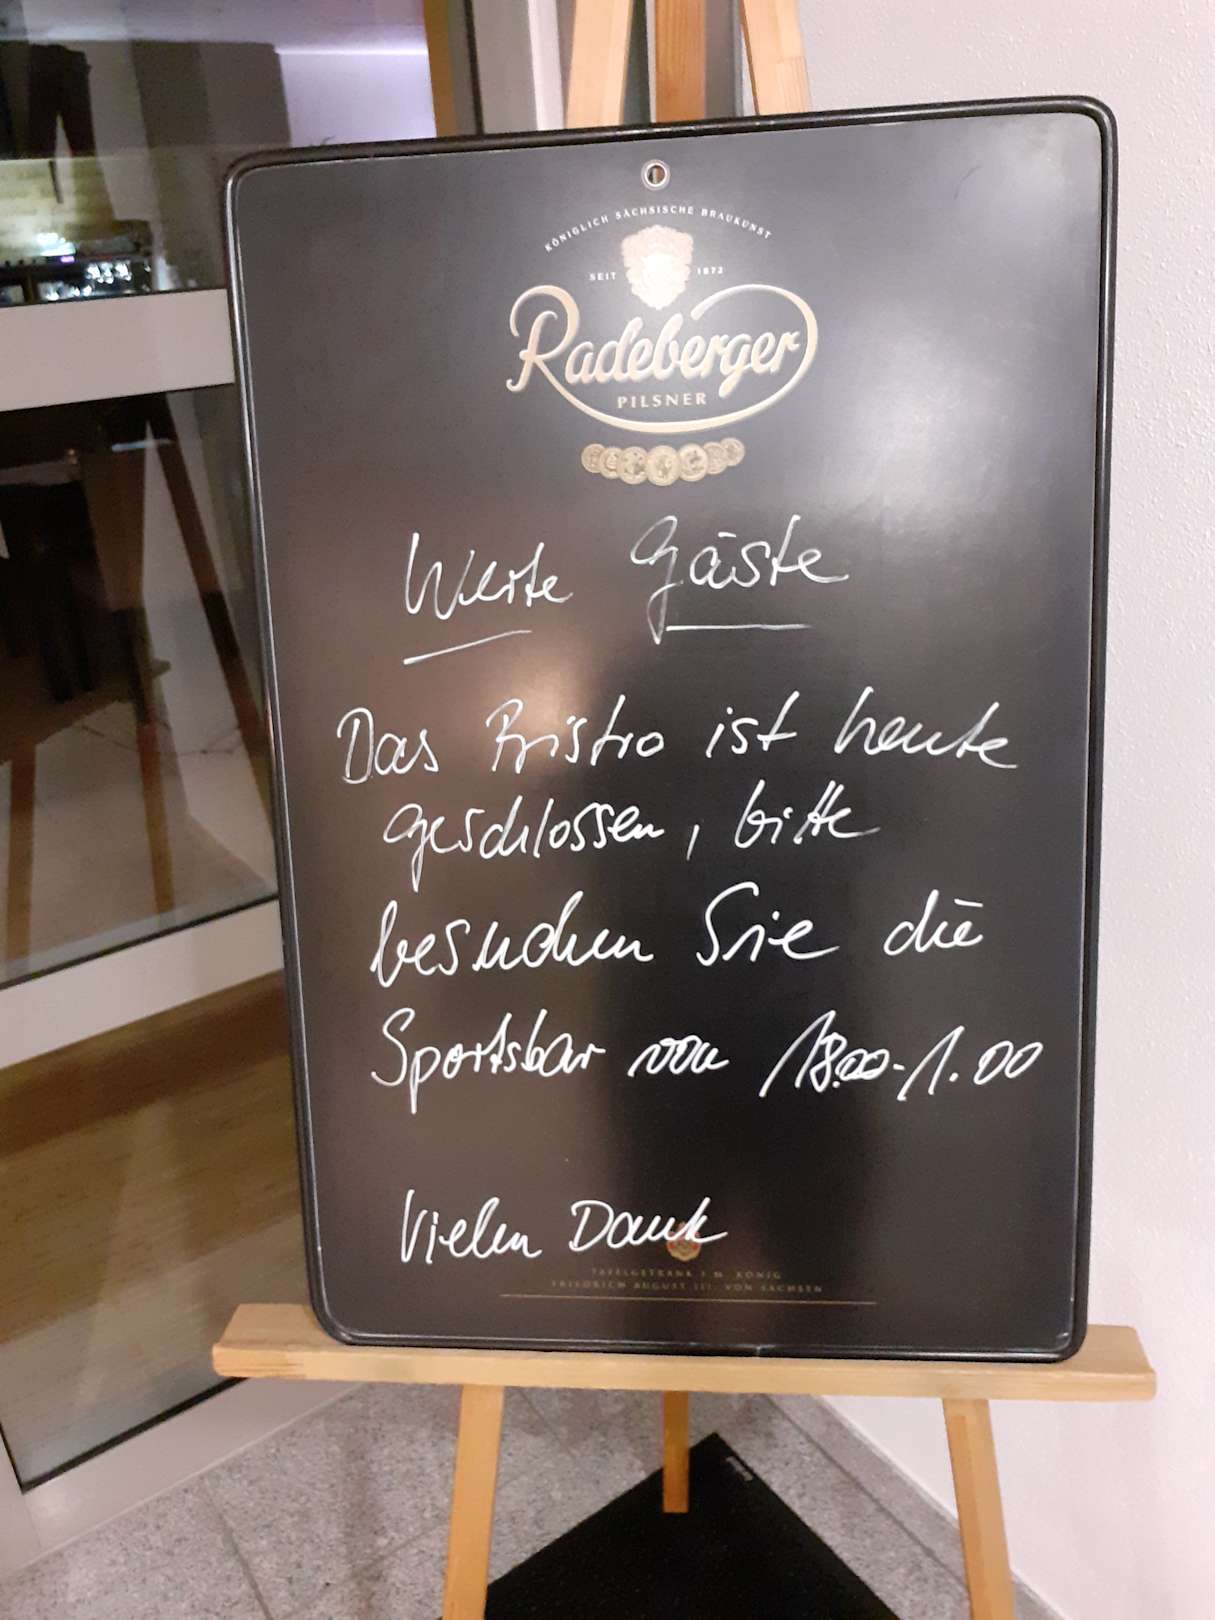 KÖNIGLICH SÄCHSISCHE BRAUKUNST
SEIT 1872
Radeberger
PILSNER
Werte Gäste
Das Bistro ist heute
geschlossen, bitte
besuchen Sie die
Sportsbar von 18.00-1.00
Vielen Dank
TAFELGETRÄNK S.M. KÖNIG
FRIEDRICH AUGUST III. VON SACHSEN